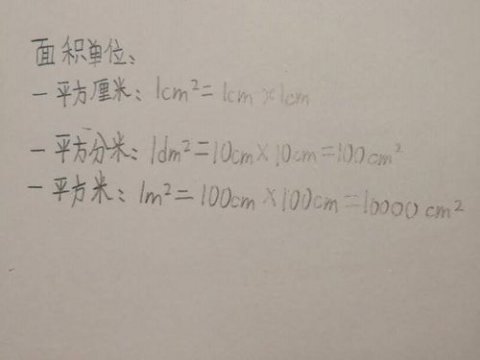 面积单位：
一平方厘米：1cm²=1cm×1cm
一平方分米：1dm²=10cm×10cm=100cm²
一平方米：1m²=100cm×100cm=10000cm²